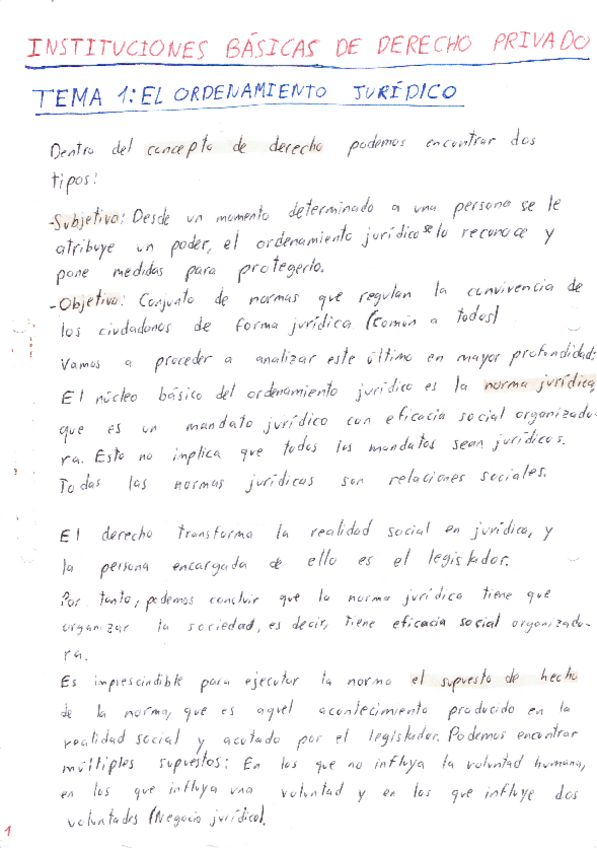 INSTITUCIONES BÁSICAS DE DERECHO PRIVADO
TEMA 1: EL ORDENAMIENTO JURÍDICO
Dentro del concepto de derecho podemos encontrar dos
tipos:
-Subjetivo: Desde un momento determinado a una persona se le
atribuye un poder, el ordenamiento jurídico se lo reconoce y
pone medidas para protegerlo.
-Objetivo: Conjunto de normas que regulan la convivencia de
los ciudadanos de forma jurídica (común a todos)
Vamos a proceder a analizar este último en mayor profundidad:
El núcleo básico del ordenamiento jurídico es la norma jurídica,
que es un mandato jurídico con eficacia social organizado-
ra. Esto no implica que todos los mandatos sean jurídicos.
Todas las normas jurídicas son relaciones sociales.
El derecho transforma la realidad social en jurídica, y
la persona encargada de ello es el legislador.
Por tanto, podemos concluir que la norma jurídica tiene que
organizar la sociedad, es decir, tiene eficacia social organizado-
ra.
Es imprescindible para ejecutar la norma el supuesto de hecho
de la norma, que es aquel acontecimiento producido en la
realidad social y acotado por el legislador. Podemos encontrar
múltiples supuestos: En los que no influya la voluntad humana,
en los que influya una voluntad y en los que influye dos
voluntades (Negocio jurídico).
1